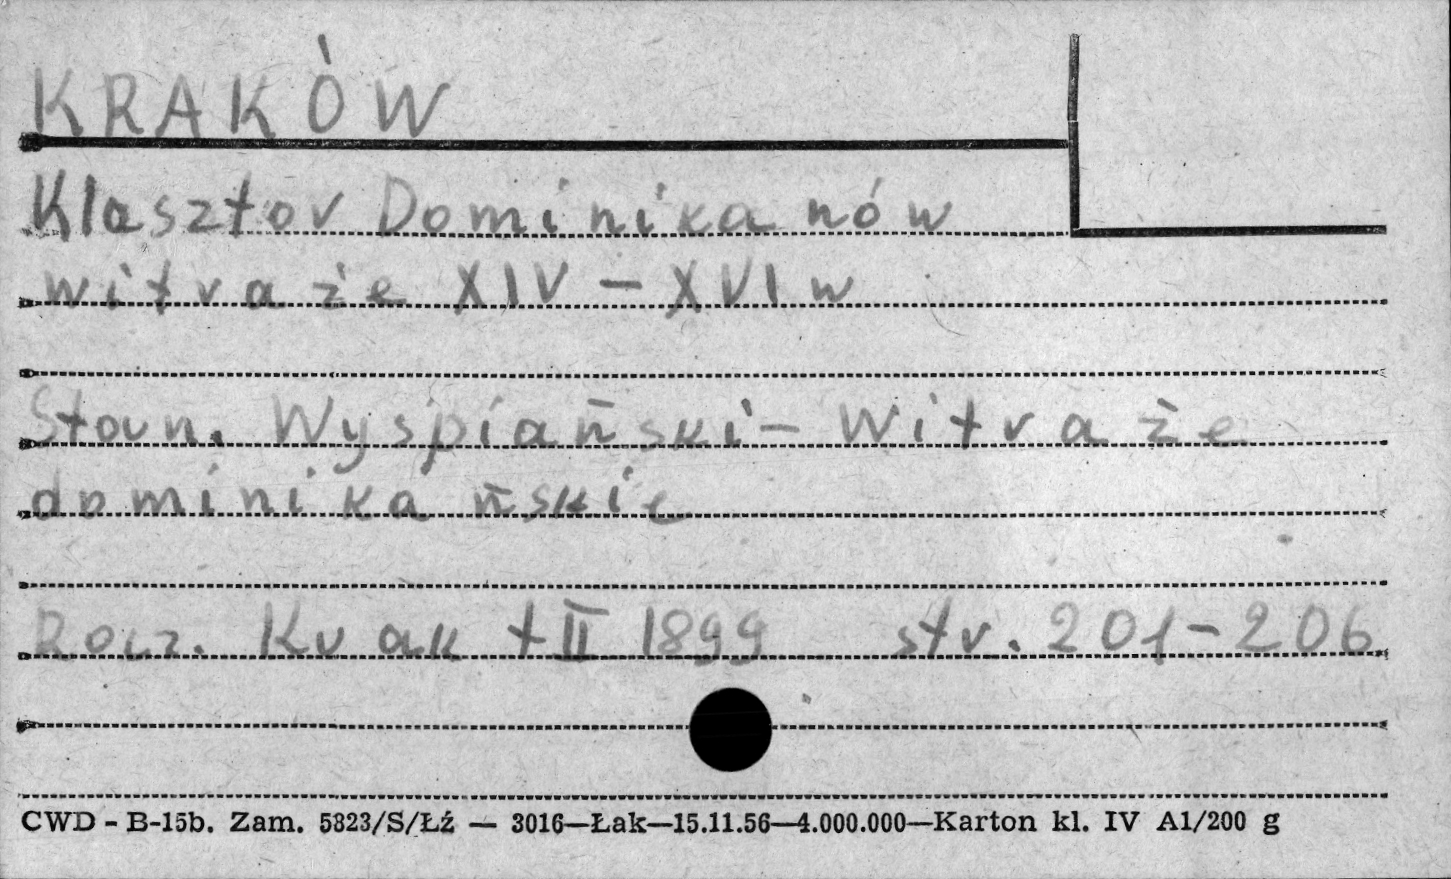 KRAKÓW
Klasztor Dominikanów
witraże XIV – XVI w
Stow. Wyspiański – Witraże
dominikańskie
Rocz. Krak t II 1899 str. 201-206
CWD - B-15b. Zam. 5823/S/Łź — 3016—Łak—15.11.56—4.000.000—Karton kl. IV A1/200 g